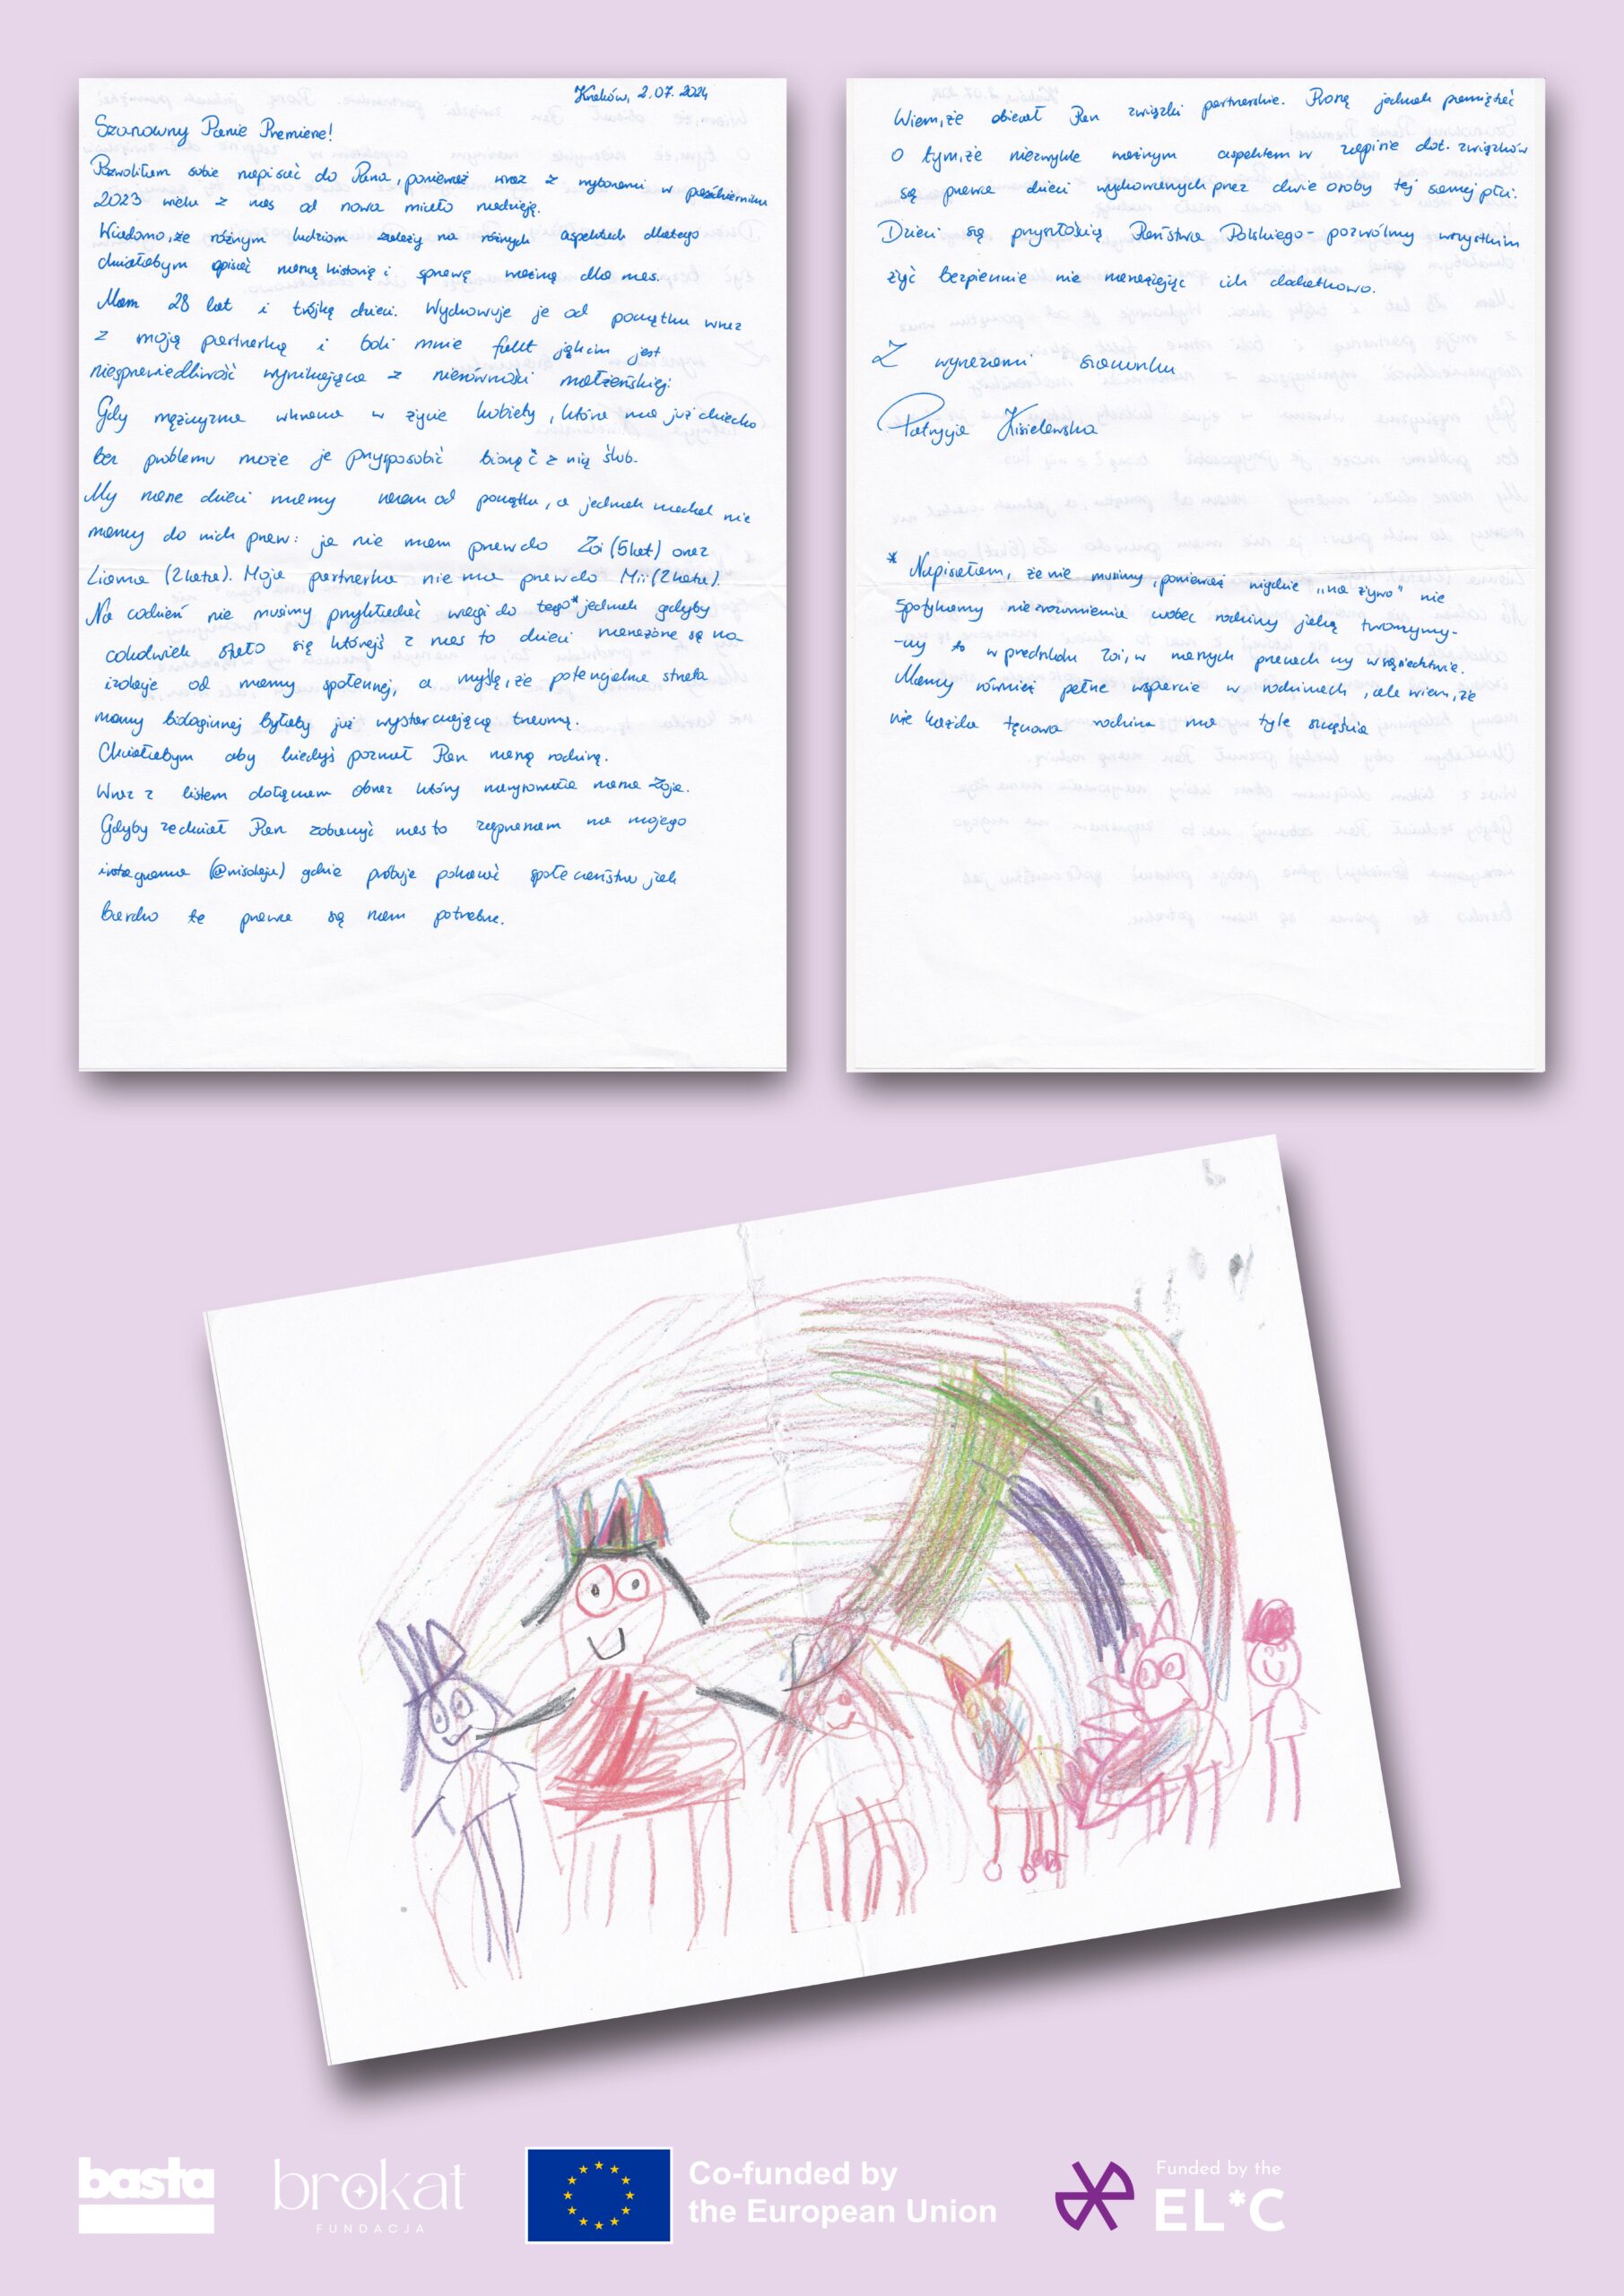 Kraków, 2.07.2024
Szanowny Panie Premierze!
Pozwoliłam sobie napisać do Pana, ponieważ wraz z wyborami w październiku
2023 wielu z nas od nowa miało nadzieję.
Wiadomo, że różnym ludziom zależy na różnych aspektach dlatego
chciałabym opisać naszą historię i sprawę ważną dla nas.
Mam 28 lat i trójkę dzieci. Wychowuje je od początku wraz
z moją partnerką i boli mnie fakt jakim jest
niesprawiedliwość wynikająca z nierówności małżeńskiej:
Gdy mężczyzna wkracza w życie kobiety, która ma już dziecko
bez problemu może je przysposobić biorąc z nią ślub.
My nasze dzieci mamy razem od początku, a jednak nadal nie
mamy do nich praw: ja nie mam praw do Zoi (5 lat) oraz
Liama (2 lata). Moja partnerka nie ma praw do Mii (2 lata).
Na codzień nie musimy przykładać wagi do tego* jednak gdyby
cokolwiek stało się którejś z nas to dzieci narażone są na
izolację od mamy społecznej, a myślę, że potencjalna strata
mamy biologicznej byłaby już wystarczającą traumą.
Chciałabym aby kiedyś poznał Pan naszą rodzinę.
Wraz z listem dołączam obraz który narysowała nasza Zoja.
Gdyby zechciał Pan zobaczyć nas to zapraszam na mojego
instagrama gdzie próbuje pokazać społeczeństwu jak
bardzo te prawa są nam potrzebne.
Wiem, że obiecał Pan związki partnerskie. Proszę jednak pamiętać
o tym, że niezwykle ważnym aspektem w zapisie dot. związków
są prawa dzieci wychowanych przez dwie osoby tej samej płci.
Dzieci są przyszłością Państwa Polskiego - pozwólmy wszystkim
żyć bezpiecznie nie narażając ich dodatkowo.
Z wyrazami szacunku
Patrycja Kisielewska
* Napisałam, że nie musimy, ponieważ nigdzie "na żywo" nie
spotykamy niezrozumienia wobec rodziny jaką tworzymy-
-czy to w przedszkolu Zoi, w naszych pracach czy w sąsiedztwie.
Mamy również pełne wsparcie w rodzinach, ale wiem, że
nie każda tęczowa rodzina ma tyle szczęścia
basta
brokat
FUNDACJA
Co-funded by
the European Union
Funded by the
EL*C